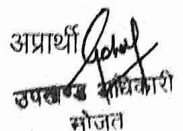 अप्रार्थी
उपखण्ड अधिकारी
सोजत